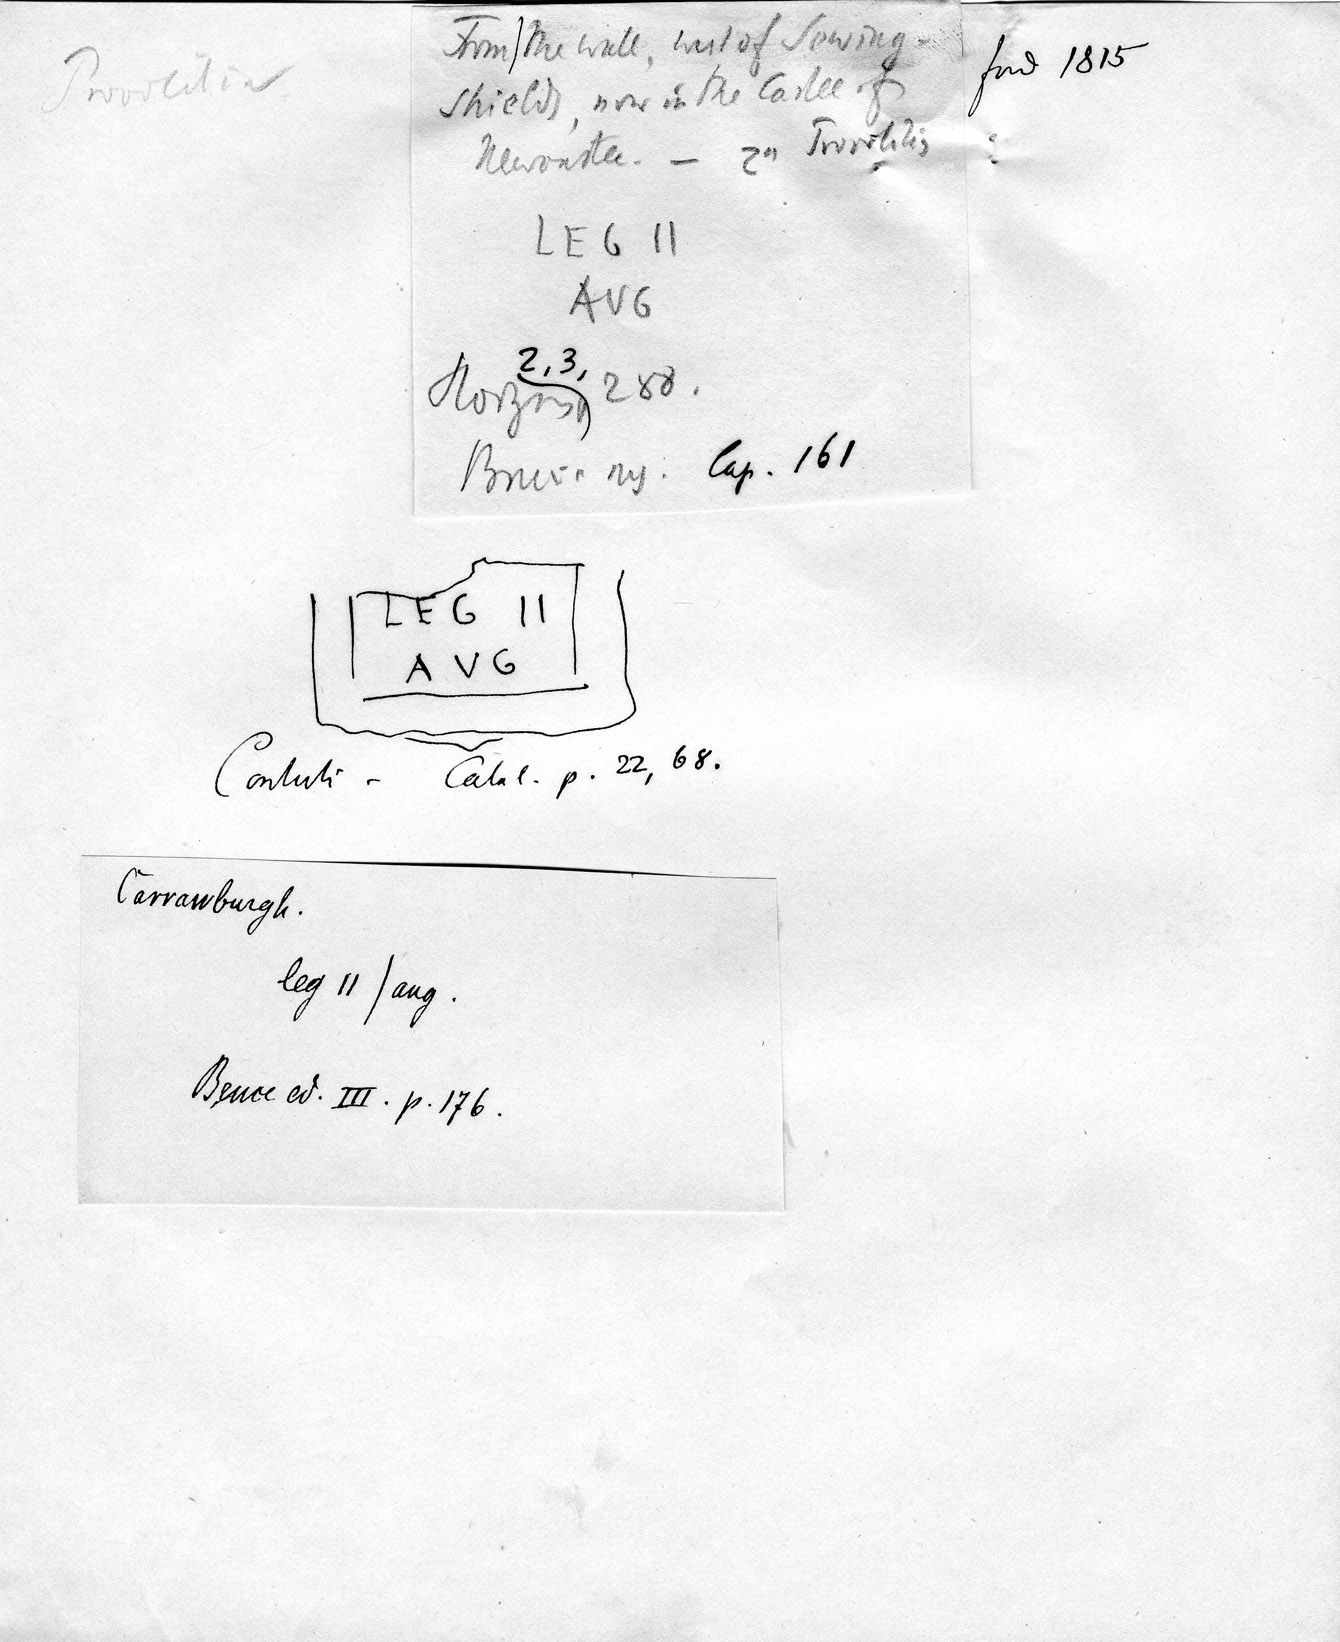 Procolitia
From the wall, west of Sewing-
shields, now in the Castle of
Newcastle. — zu Procolitia
found 1815
LEG II
AVG
2, 3,
288.
Bruce Cap. 161
LEG II
AVG
Contuli - Catal. p. 22, 68.
Carrawburgh.
leg II / aug.
Bruce ed. III. p. 176.